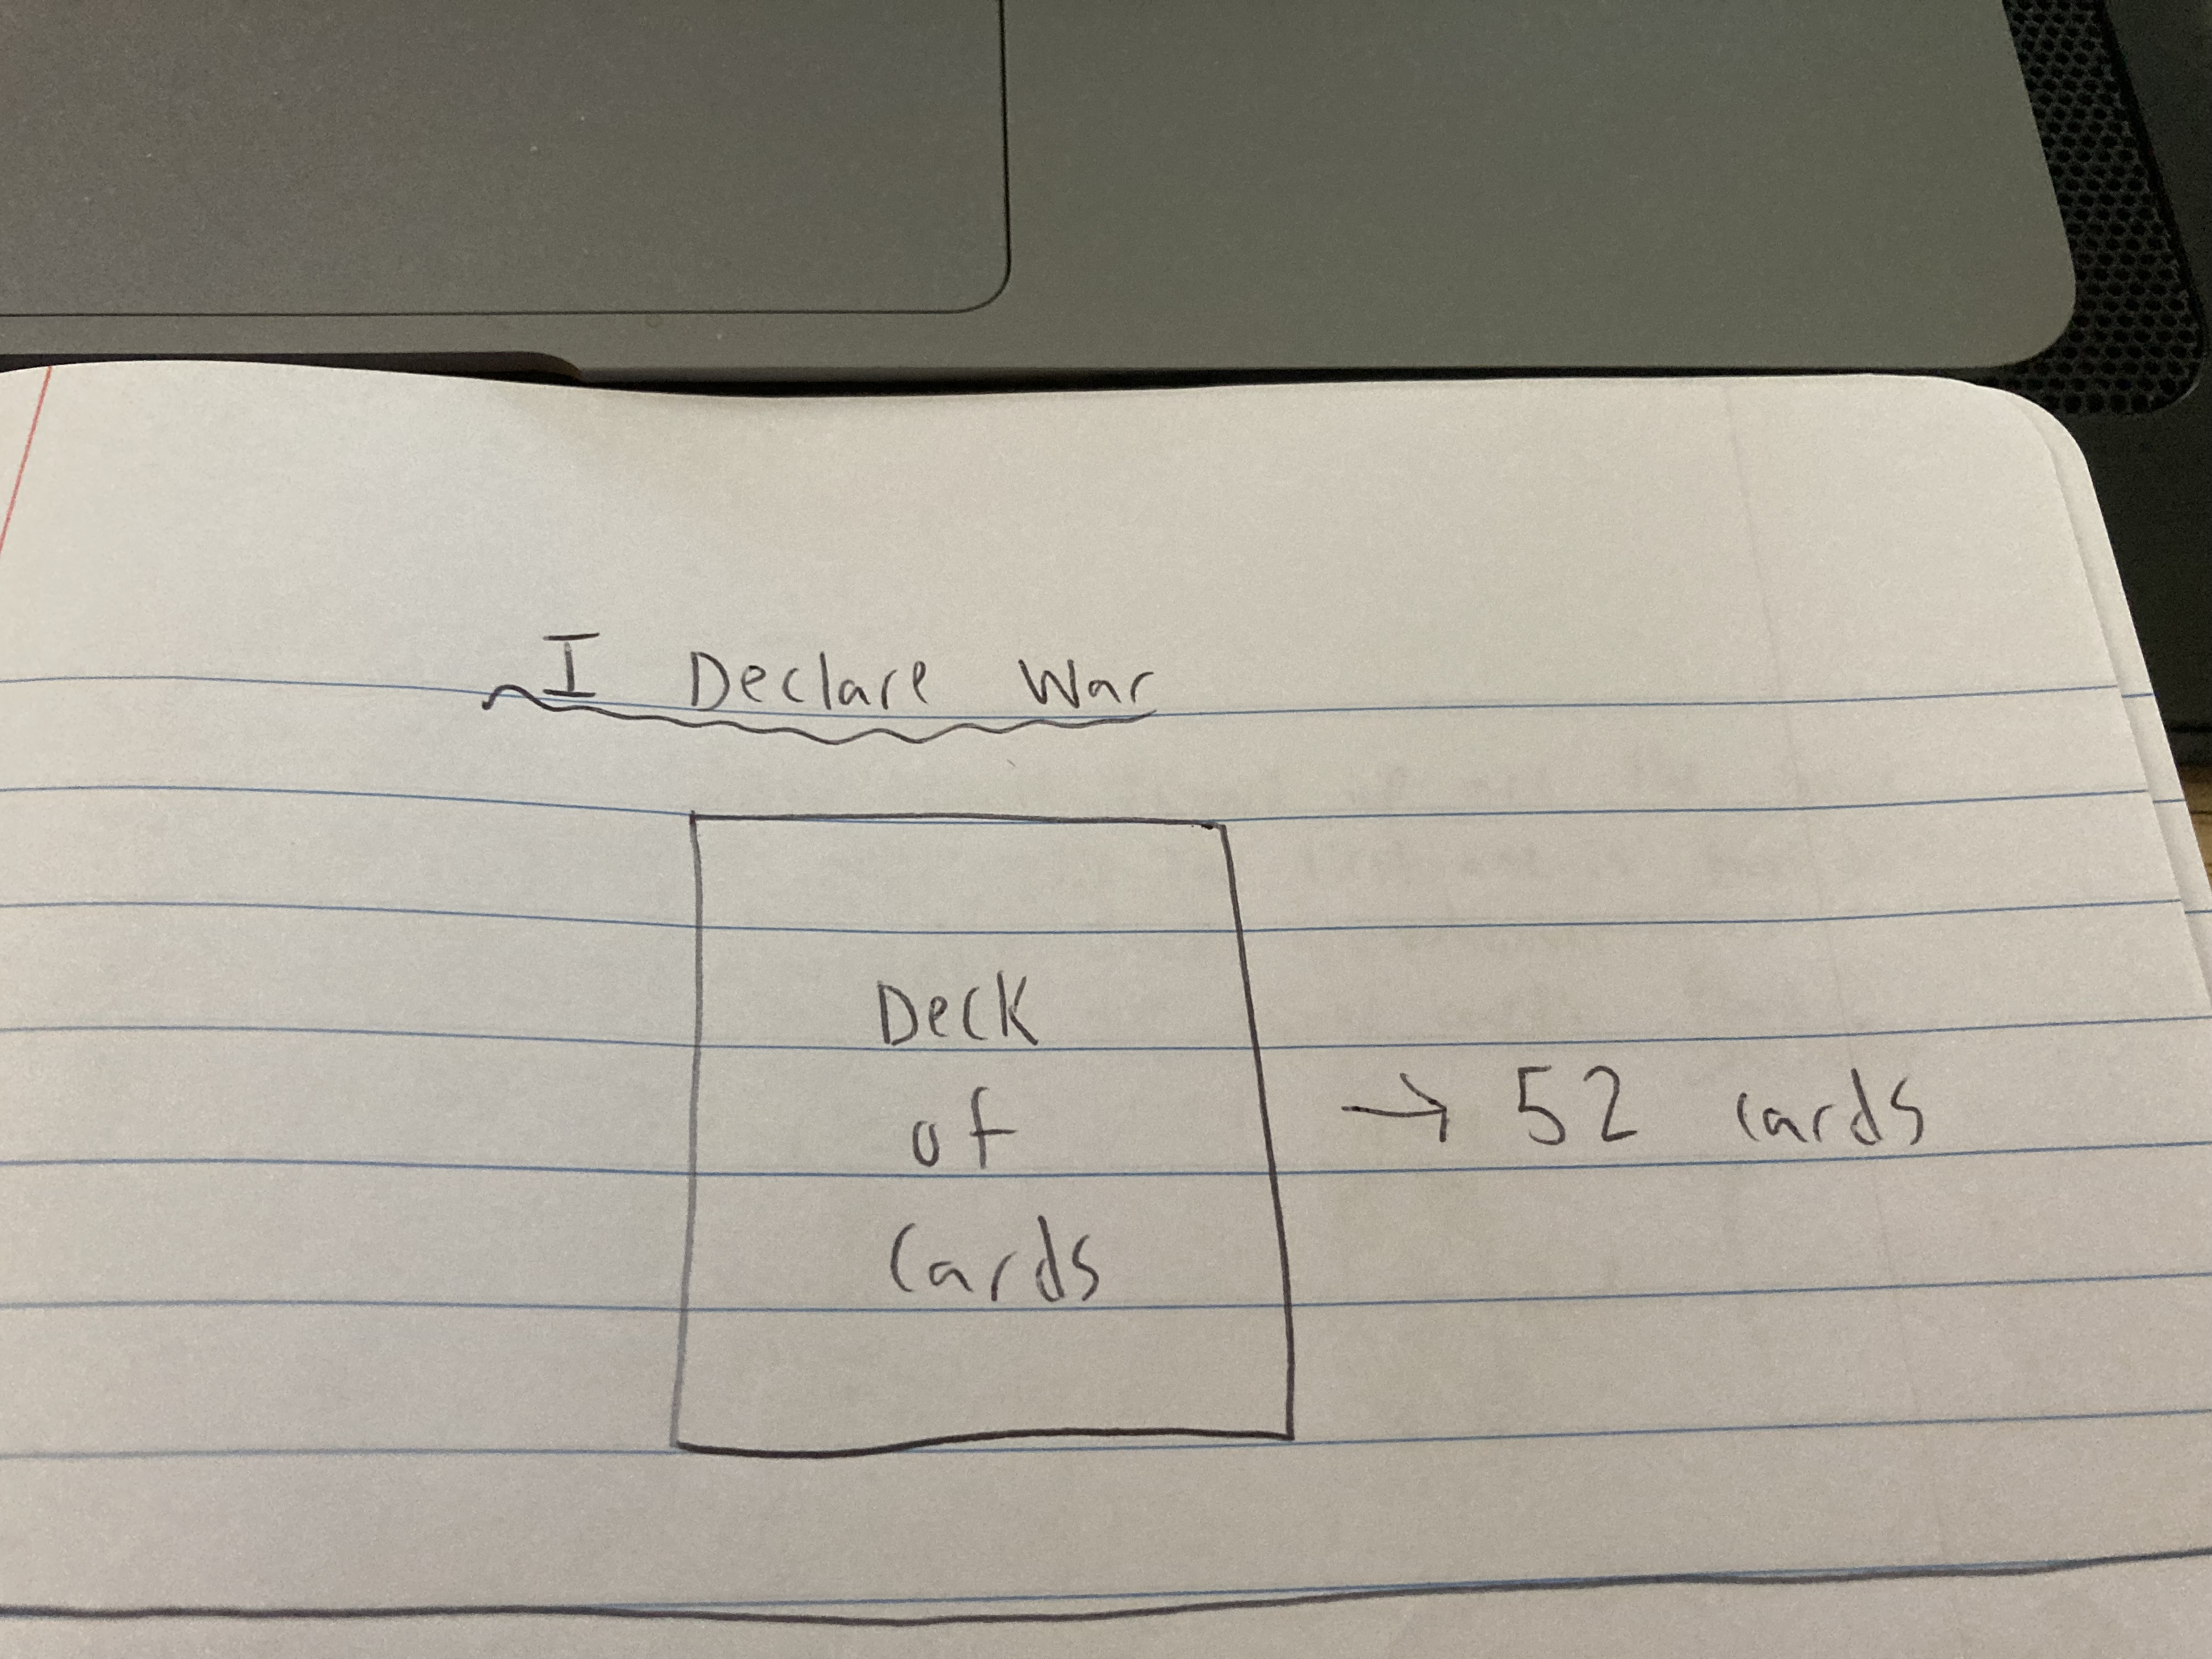 I Declare War
Deck
of
Cards
→ 52 cards